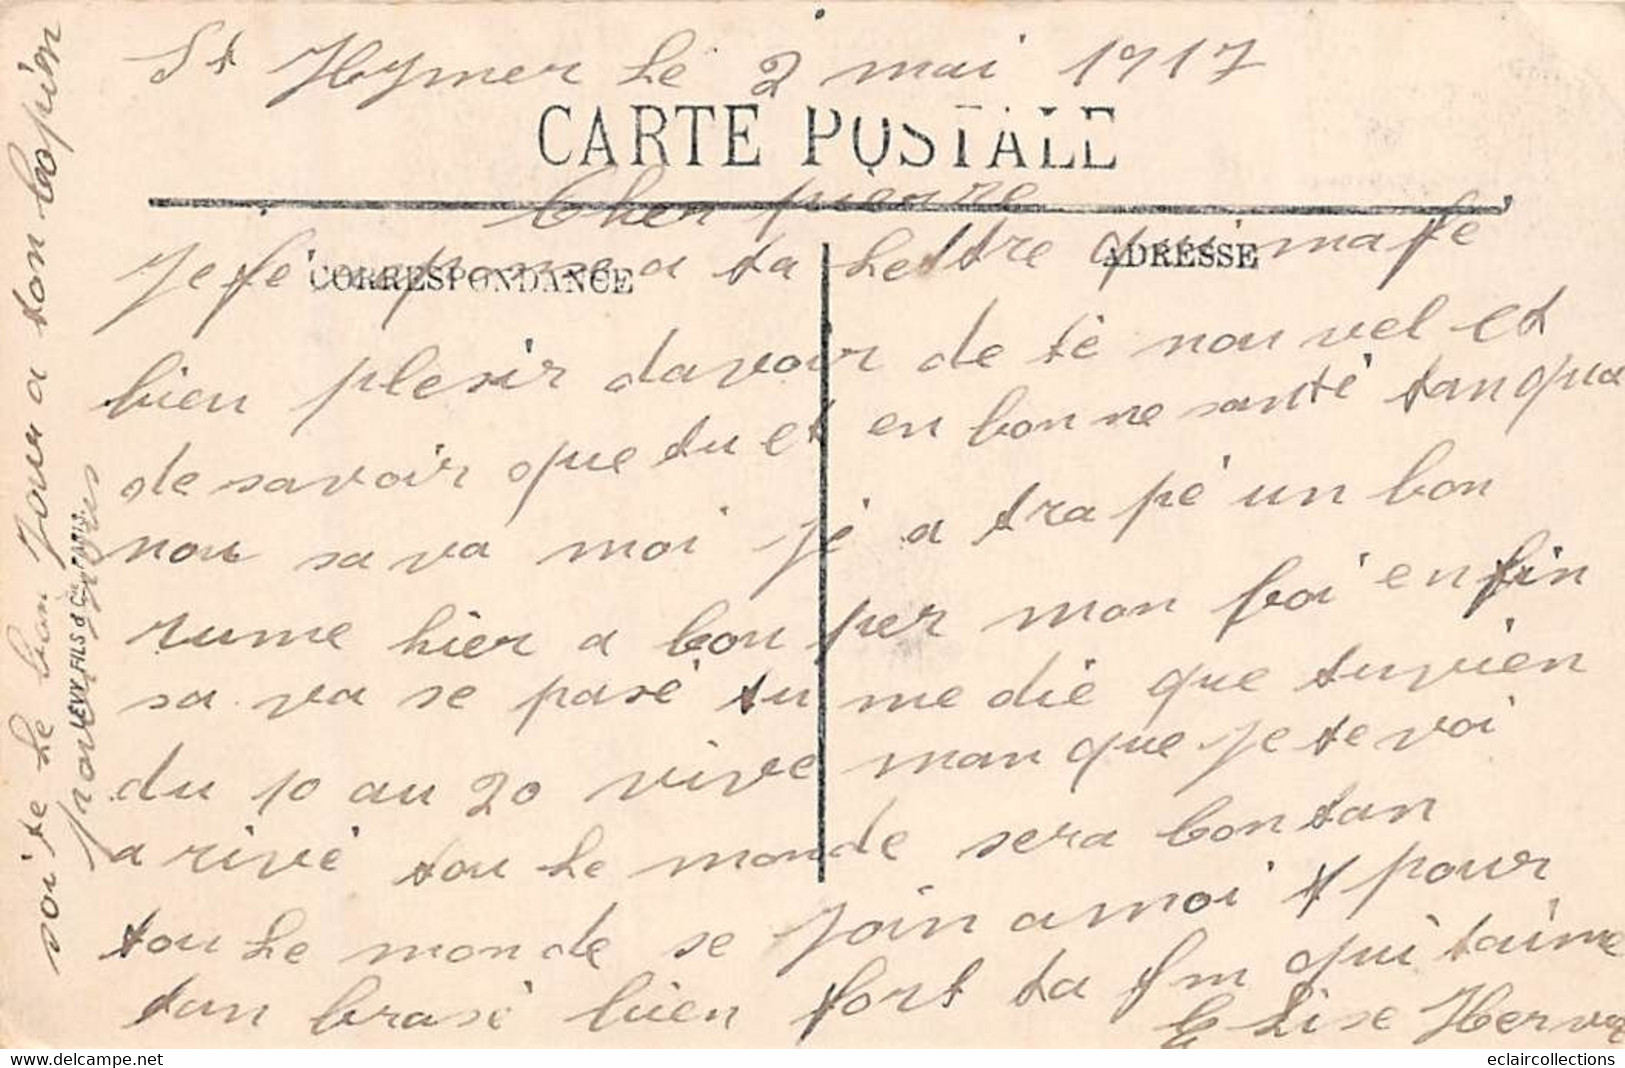 St Hymer le 2 mai 1917
CARTE POSTALE
Cher pierre
CORRESPONDANCE
ADRESSE
Je fé reponse a ta lettre qui ma fé
bien plesir davoir de té nouvel et
de savoir que tu et en bonne santé tanqua
nou sa va moi jé a trapé un bon
rume hier a bon per mon foi enfin
sa va se pasé tu me dié que tuvien
du 10 au 20 vive man que je te voi
a rivé tou le monde sera bontan
tou le monde se join a moi pour
tan brasé bien fort ta fm qui taime
Elise Herva
soite le bon Jour a ton copien
pour nous
LEVY FILS & Cie PARIS.
eclaircollections